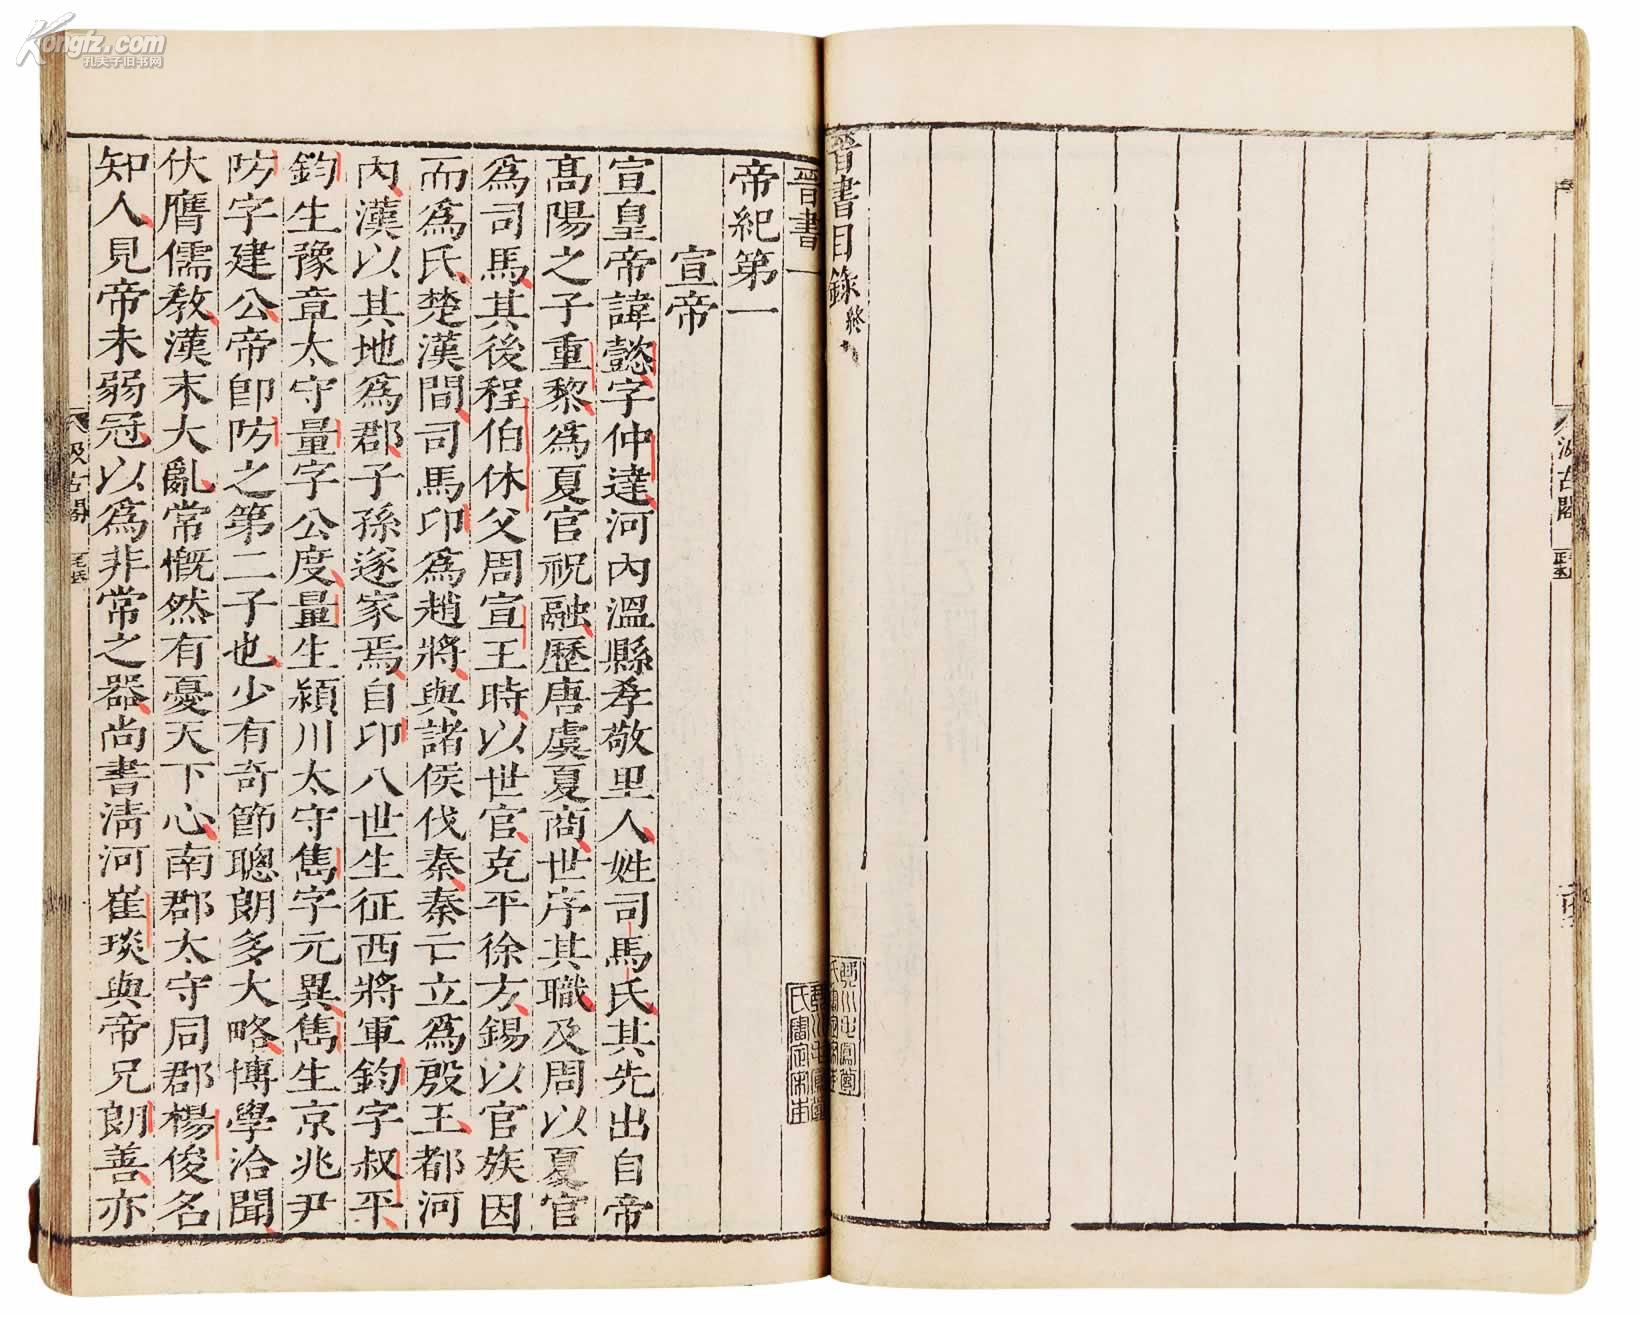 Kongfz.com
孔夫子旧书网
晉書目錄終
汲古閣
毛氏
晉書一
帝紀第一
宣帝
宣皇帝諱懿字仲達河內溫縣孝敬里人姓司馬氏其先出自帝
高陽之子重黎爲夏官祝融歷唐虞夏商世序其職及周以夏官
爲司馬其後程伯休父周宣王時以世官克平徐方錫以官族因
而爲氏楚漢間司馬卬爲趙將與諸侯伐秦秦亡立爲殷王都河
內漢以其地爲郡子孫遂家焉自卬八世生征西將軍鈞字叔平
鈞生豫章太守量字公度量生潁川太守雋字元異雋生京兆尹
防字建公帝卽防之第二子也少有奇節聰朗多大略博學洽聞
伏膺儒教漢末大亂常慨然有憂天下心南郡太守同郡楊俊名
知人見帝未弱冠以爲非常之器尚書清河崔琰與帝兄朗善亦
汲古閣
毛氏